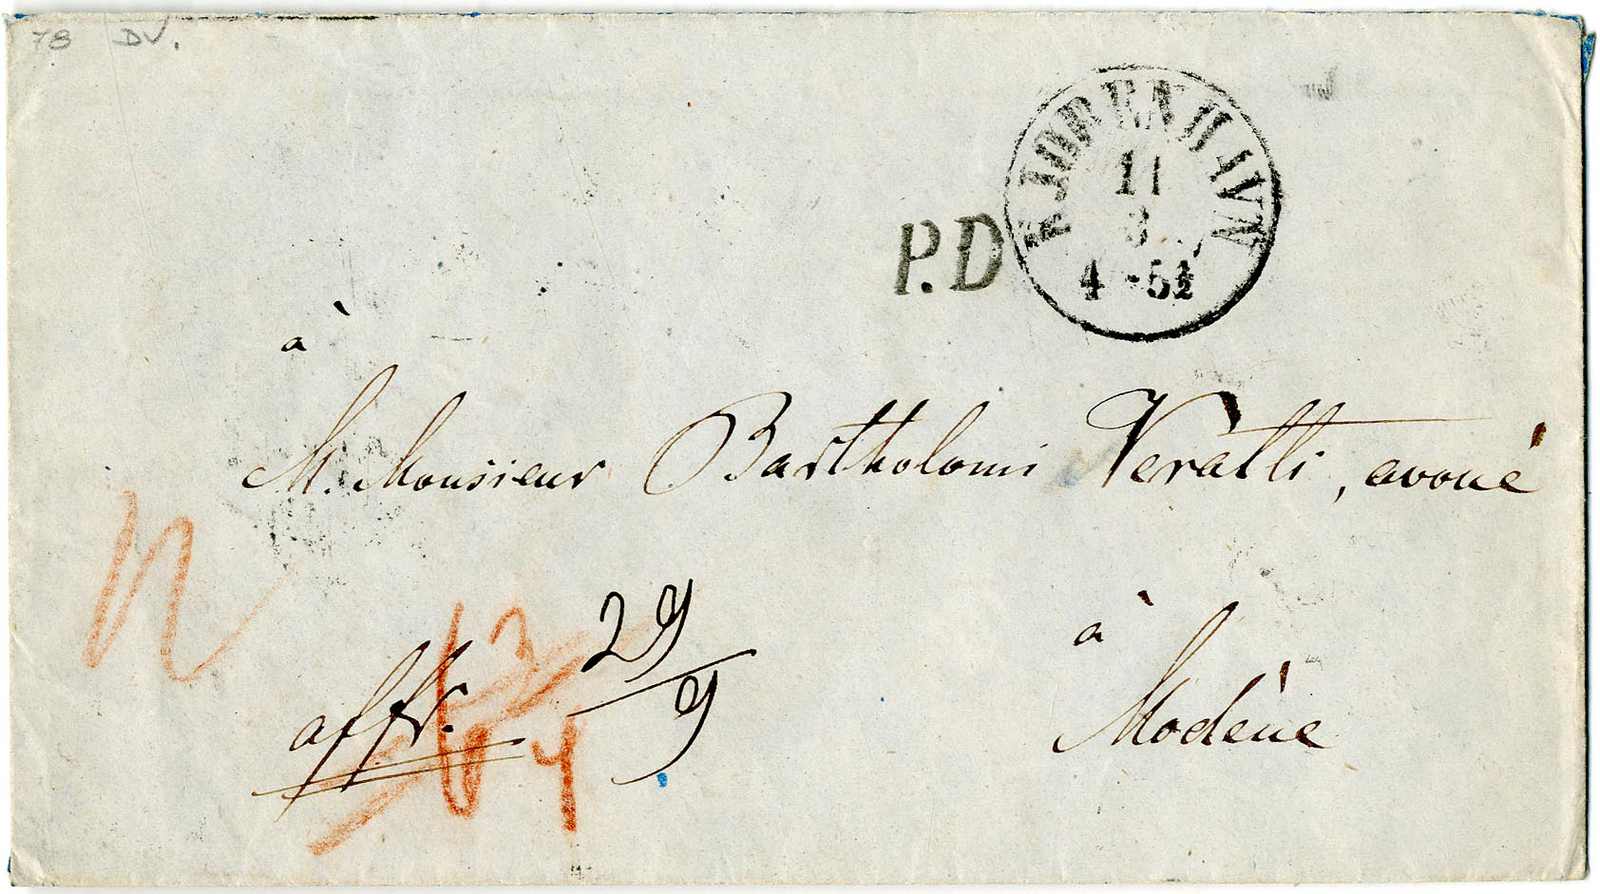 78 DV.
KJØBENHAVN
11
3
4-5½
P.D
à
M. Monsieur Bartholomi Veratti, avoué
29
9
affr.
à
Modène